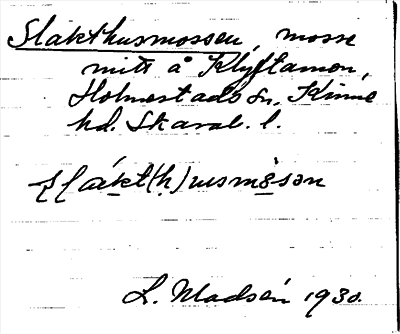 Slakthusmossen, mosse
mitt å Klyftamon,
Holmestads sn, Kinne
hd. Skarab. l.
L. Madsén 1930.